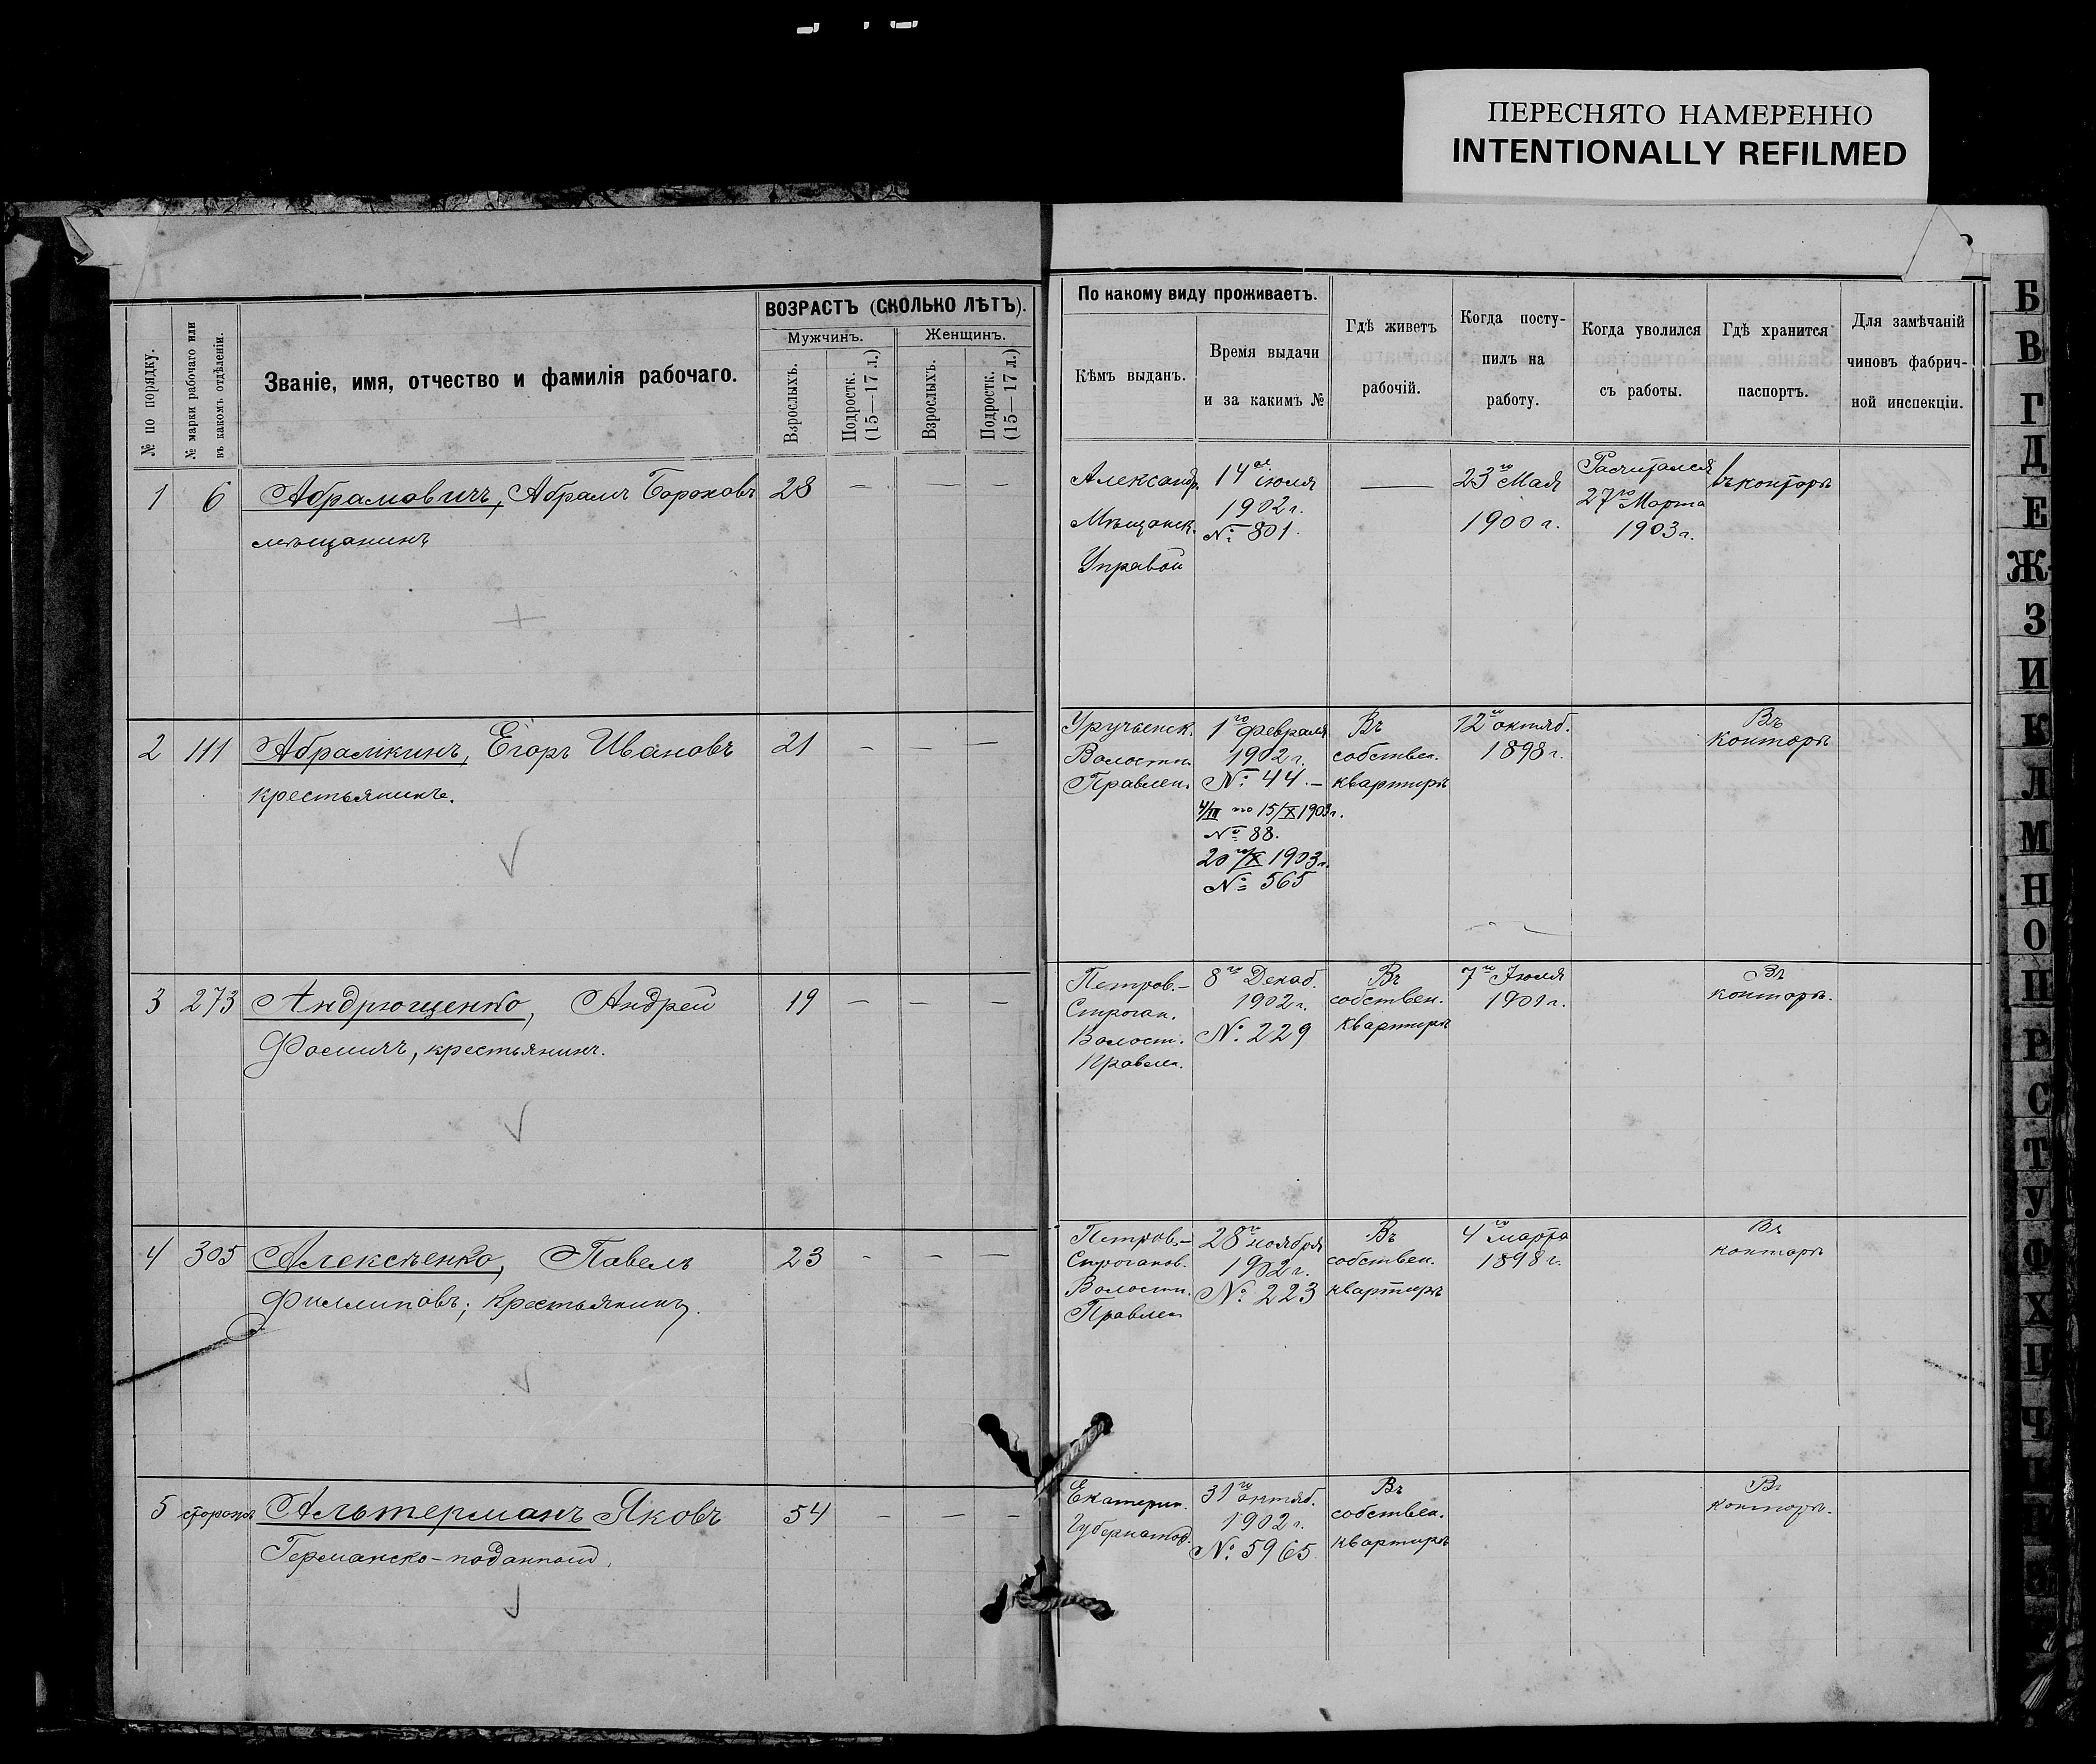 ПЕРЕСНЯТО НАМЕРЕННО
INTENTIONALLY REFILMED
№ по порядку.
№ марки рабочаго или
въ какомъ отдѣленіи.
Званіе, имя, отчество и фамилія рабочаго.
ВОЗРАСТЪ (СКОЛЬКО ЛѢТЪ).
Мужчинъ.
Женщинъ.
Взрослыхъ.
Подростк.
(15—17 л.)
Взрослыхъ.
Подростк.
(15—17 л.)
По какому виду проживаетъ.
Кѣмъ выданъ.
Время выдачи
и за какимъ №
Гдѣ живетъ
рабочій.
Когда посту-
пилъ на
работу.
Когда уволился
съ работы.
Гдѣ хранится
паспортъ.
Для замѣчаній
чиновъ фабрич-
ной инспекціи.
1 6 Абрамовичъ, Абрамъ Бороховъ 28 — — —
мѣщанинъ
Александр.
Мѣщанск.
Управой
14го іюля
1902 г.
№ 801.
—
23го Мая
1900 г.
Расчитался
27го Марта
1903 г.
въ конторѣ
2 111 Абрамкинъ, Егоръ Ивановъ 21 — — —
крестьянинъ.
Уручьенск.
Волостн.
Правлен.
1го февраля
1902 г.
№ 44. —
4/III по 15/X 1903 г.
№ 88.
20го/X 1903 г.
№ 565
Въ
собствен.
квартирѣ
12го октяб.
1898 г.
Въ
конторѣ
3 273 Андрющенко, Андрей 19 — — —
Фоминъ, крестьянинъ.
Петров.-
Строган.
Волост.
Правлен.
8го Декаб.
1902 г.
№ 229
Въ
собствен.
квартирѣ
7го Іюля
1901 г.
Въ
конторѣ.
4 305 Алексѣенко, Павелъ 23 — — —
Филиповъ; крестьянинъ.
Петров.-
Строганов.
Волостн.
Правлен
28го ноября
1902 г.
№ 223
Въ
собствен.
квартирѣ
4го марта
1898 г.
Въ
конторѣ
5 сторожъ Альтерманъ Яковъ 54 — — —
Германско-поданной.
Екатерин.
Губернатор.
31го октяб.
1902 г.
№ 5965
Въ
собствен.
квартирѣ
Въ
конторѣ.
Б
В
Г
Д
Е
Ж
З
И
К
Л
М
Н
О
П
Р
С
Т
У
Ф
Х
Ц
Ч